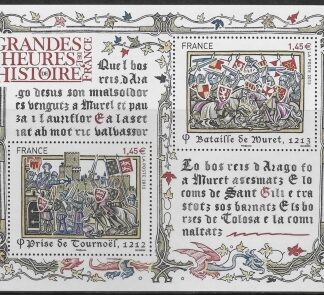 GRANDES
HEURES
DE
HISTOIRE
DE
FRANCE
Quel bos
reis d'Arago
degus son mialsoldors
es vengutz a Muret el pau
za i auriflor E a laser
at ab mot ric valvassor
FRANCE 1,45€
Bataille de Muret, 1213
FRANCE 1,45€
Prise de Tournoël, 1212
Lo bos reis d'Arago fo
a Muret asesmatz E lo
coms de Sant Gili e tra
stotz sos barnatz E ls bo
rzes de Tolosa e la comi
naltatz